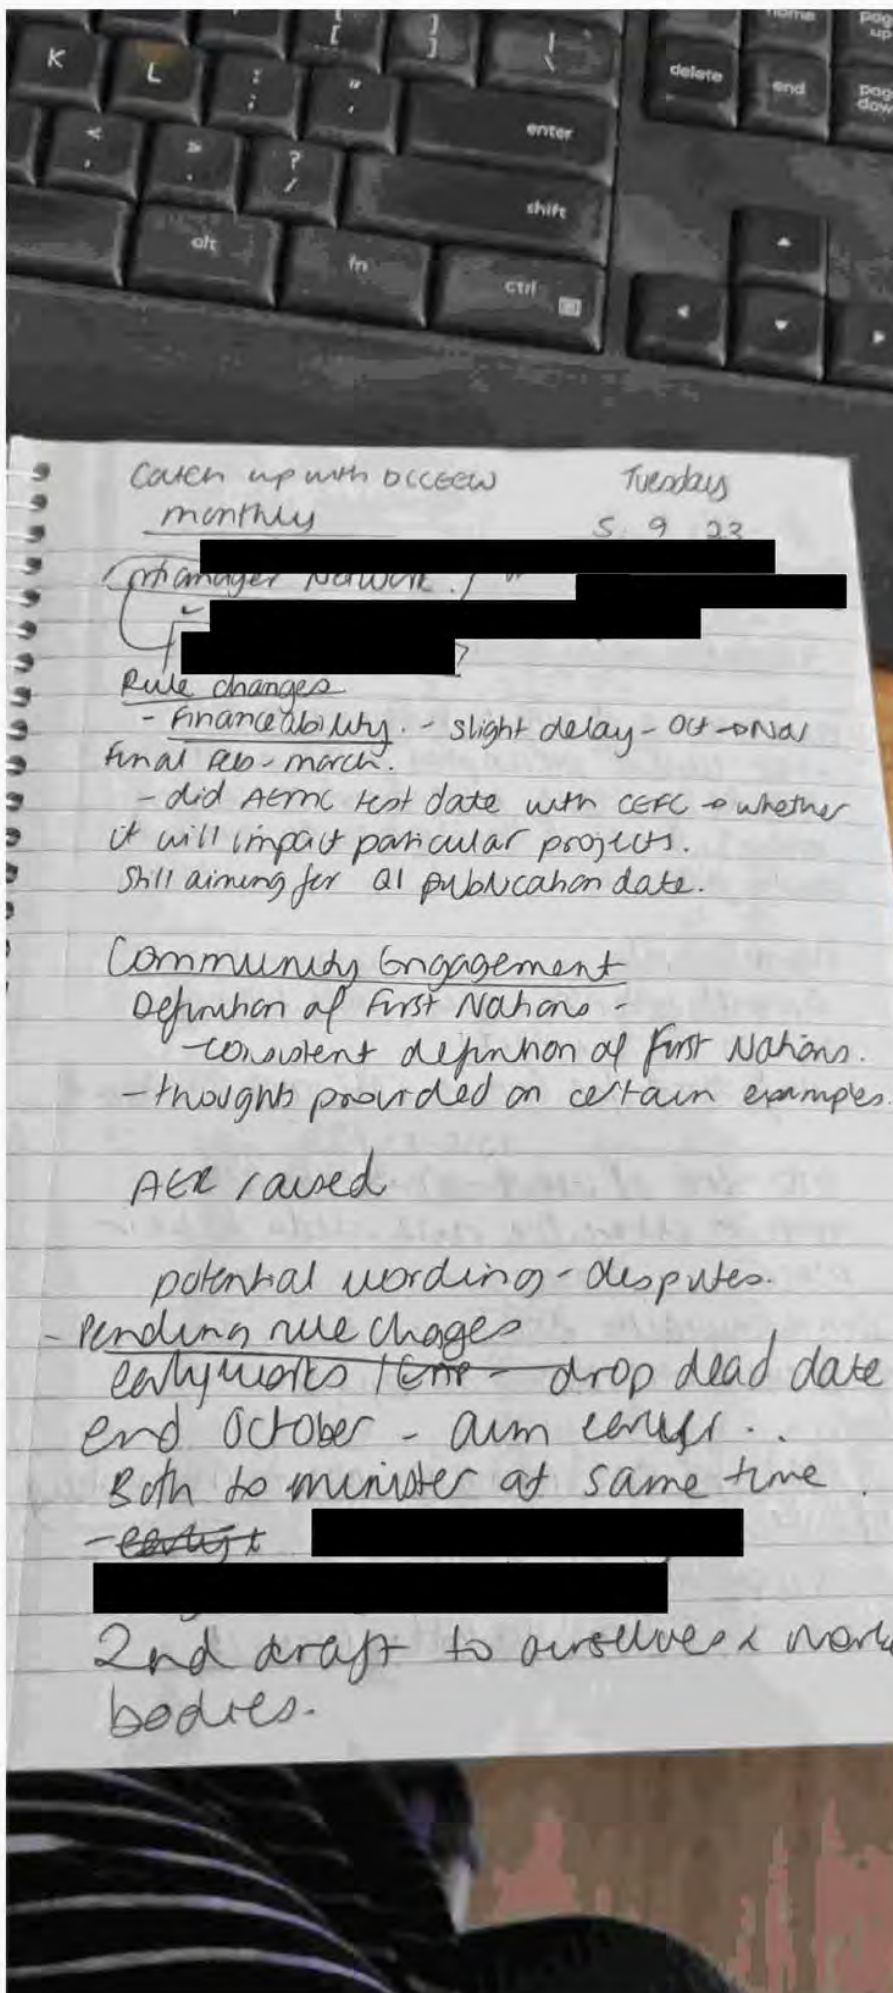 home
page up
K
L
: ;
" '
{ [
} ]
| \
delete
end
page down
enter
< ,
> .
? /
shift
alt
fn
ctrl
Catch up with DCCEEW Tuesday
monthly 5 9 23
manager Network.
Rule changes
- Financeability. - slight delay - Oct → Nov
Final Feb - march.
- did AEMC test date with CEFC → whether
it will impact particular projects.
Still aiming for Q1 publication date.
Community Engagement
Definition of First Nations -
- consistent definition of First Nations.
- thoughts provided on certain examples.
AER raised
potential wording - disputes.
- Pending rule chages
early works / drop dead date
end October - aim earlier ..
Both to minister at same time.
- early
2nd draft to ourselves &
bodies.